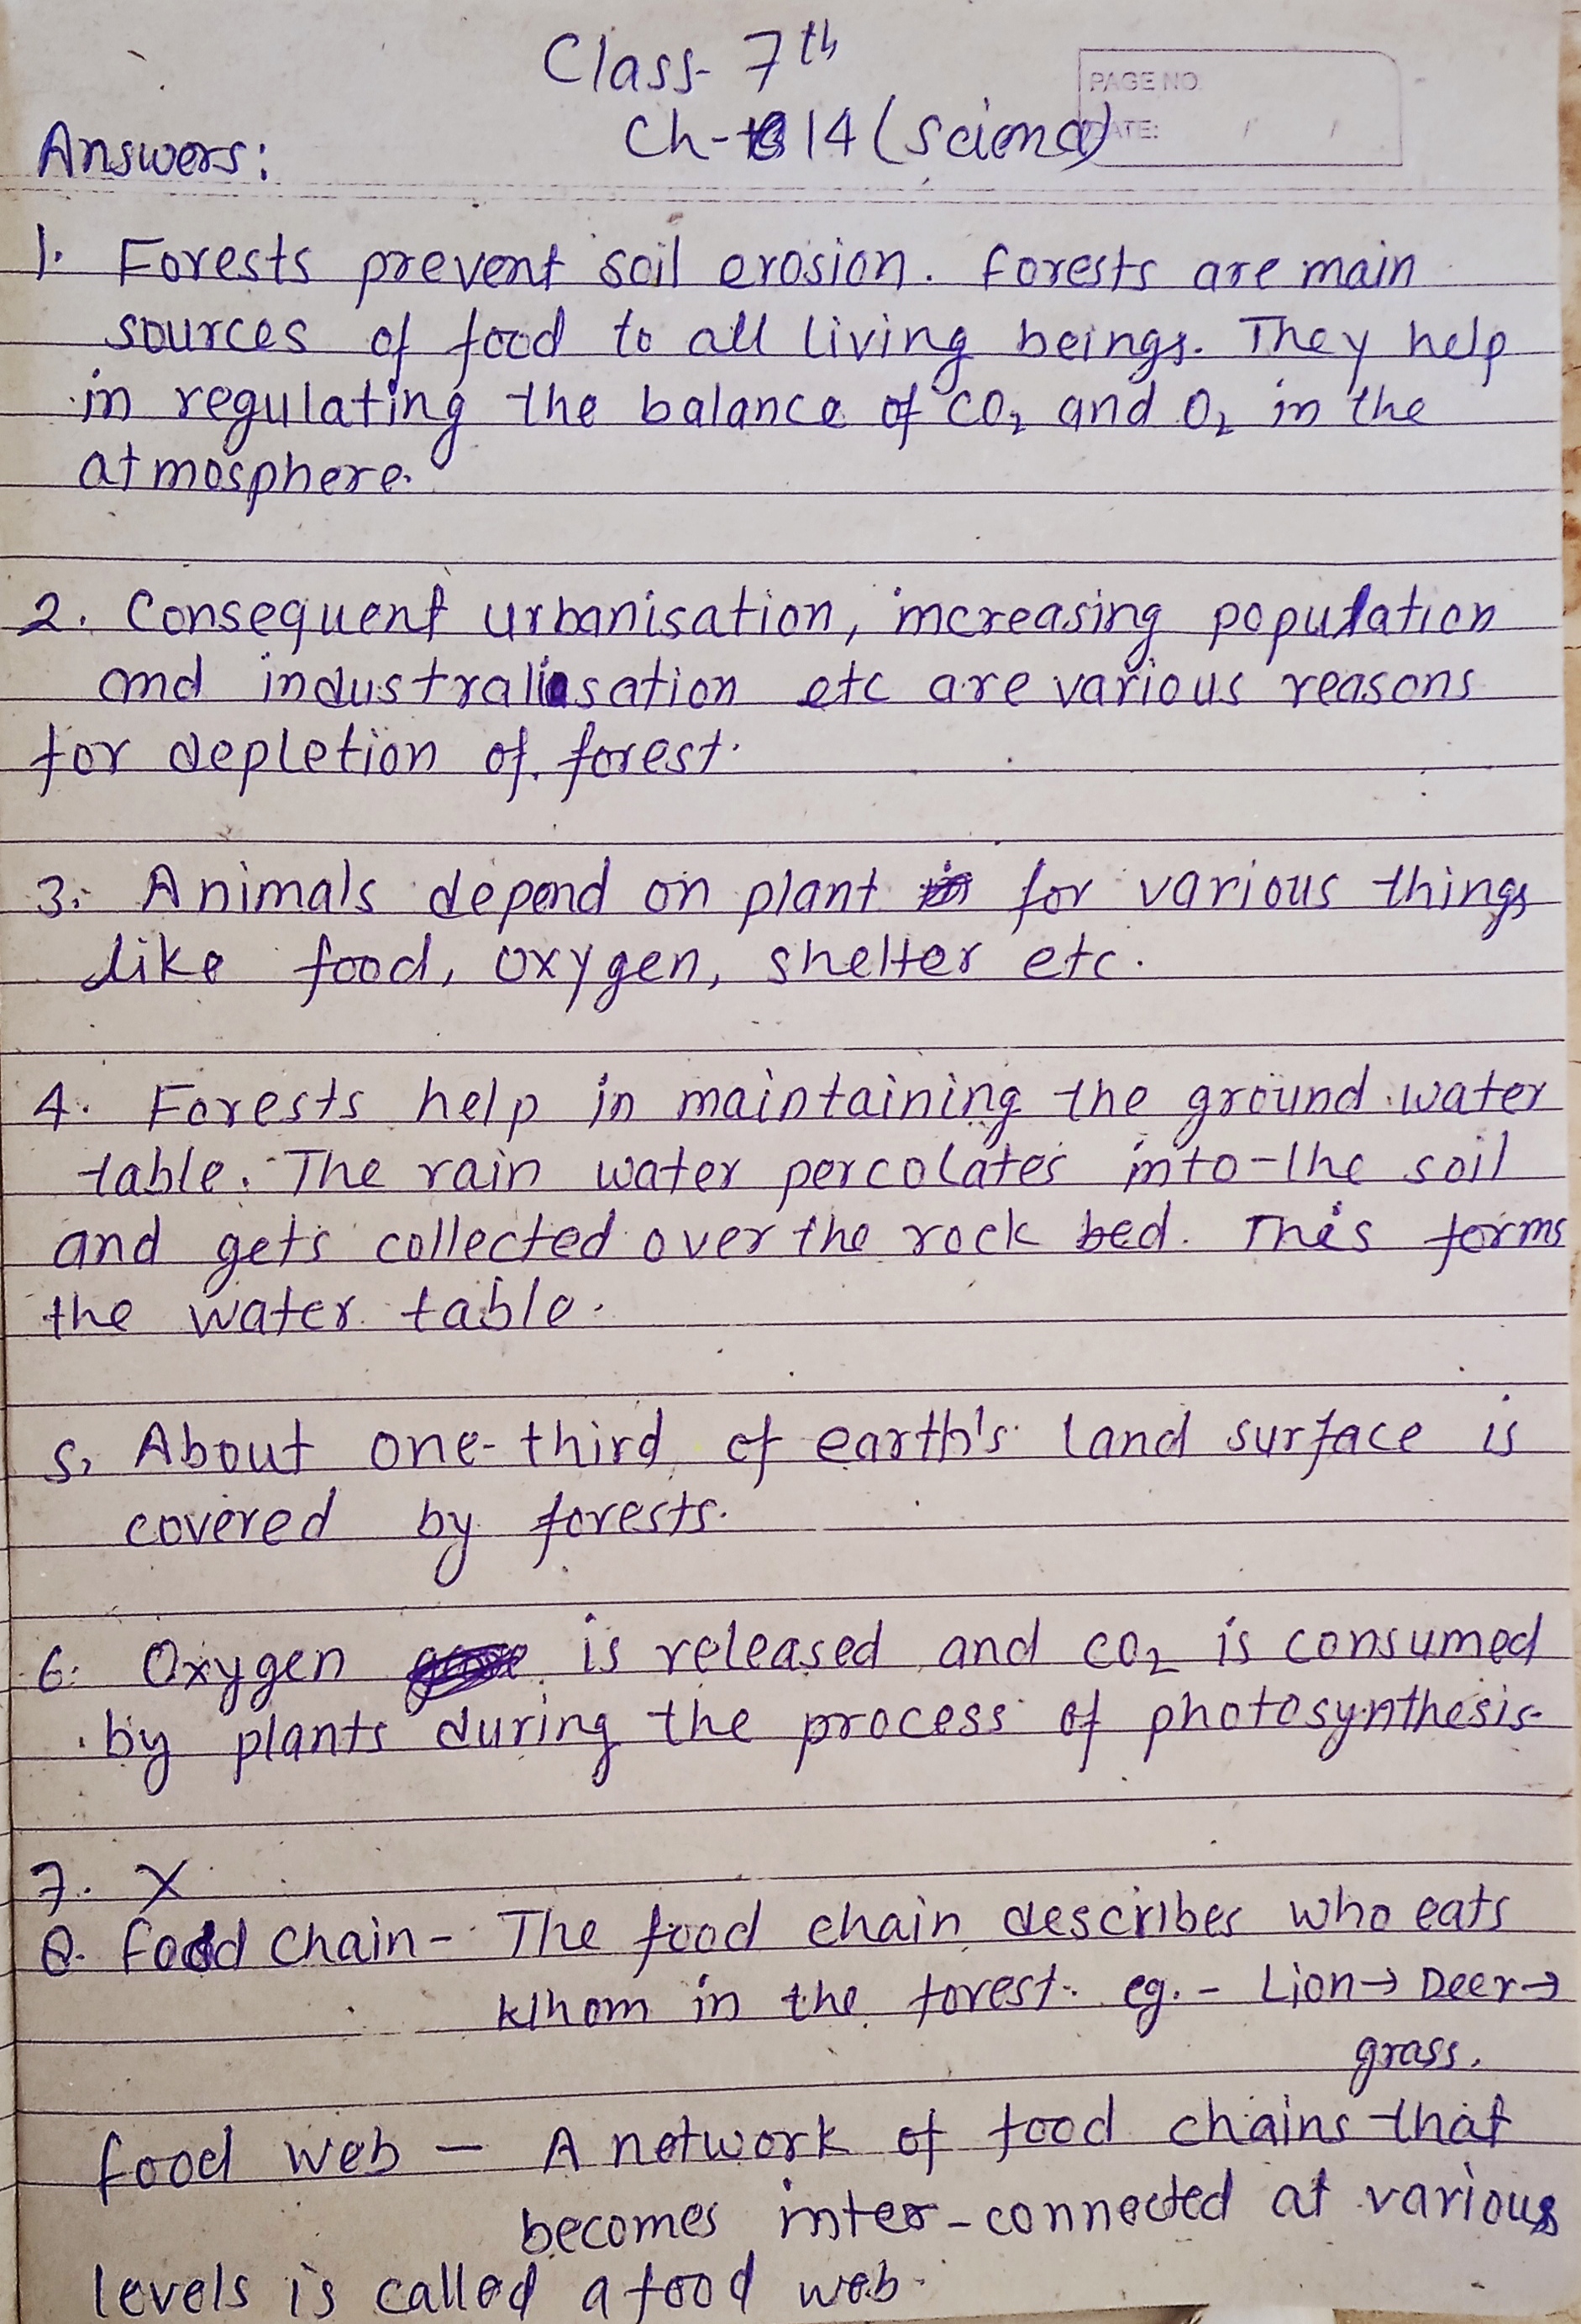 Class- 7th
PAGE NO.
Ch- 14 (Science)
DATE: / /
Answers:
1. Forests prevent soil erosion. Forests are main
sources of food to all living beings. They help
in regulating the balance of CO₂ and O₂ in the
atmosphere.
2. Consequent urbanisation, increasing population
and industralisation etc are various reasons
for depletion of forest.
3. Animals depend on plant for various things
like food, oxygen, shelter etc.
4. Forests help in maintaining the ground water
table. The rain water percolates into the soil
and gets collected over the rock bed. This forms
the water table.
5. About one-third of earth's land surface is
covered by forests.
6. Oxygen is released and CO₂ is consumed
by plants during the process of photosynthesis.
7. X
8. Food Chain - The food chain describes who eats
whom in the forest. eg. - Lion → Deer →
grass.
Food web - A network of food chains that
becomes inter-connected at various
levels is called a food web.